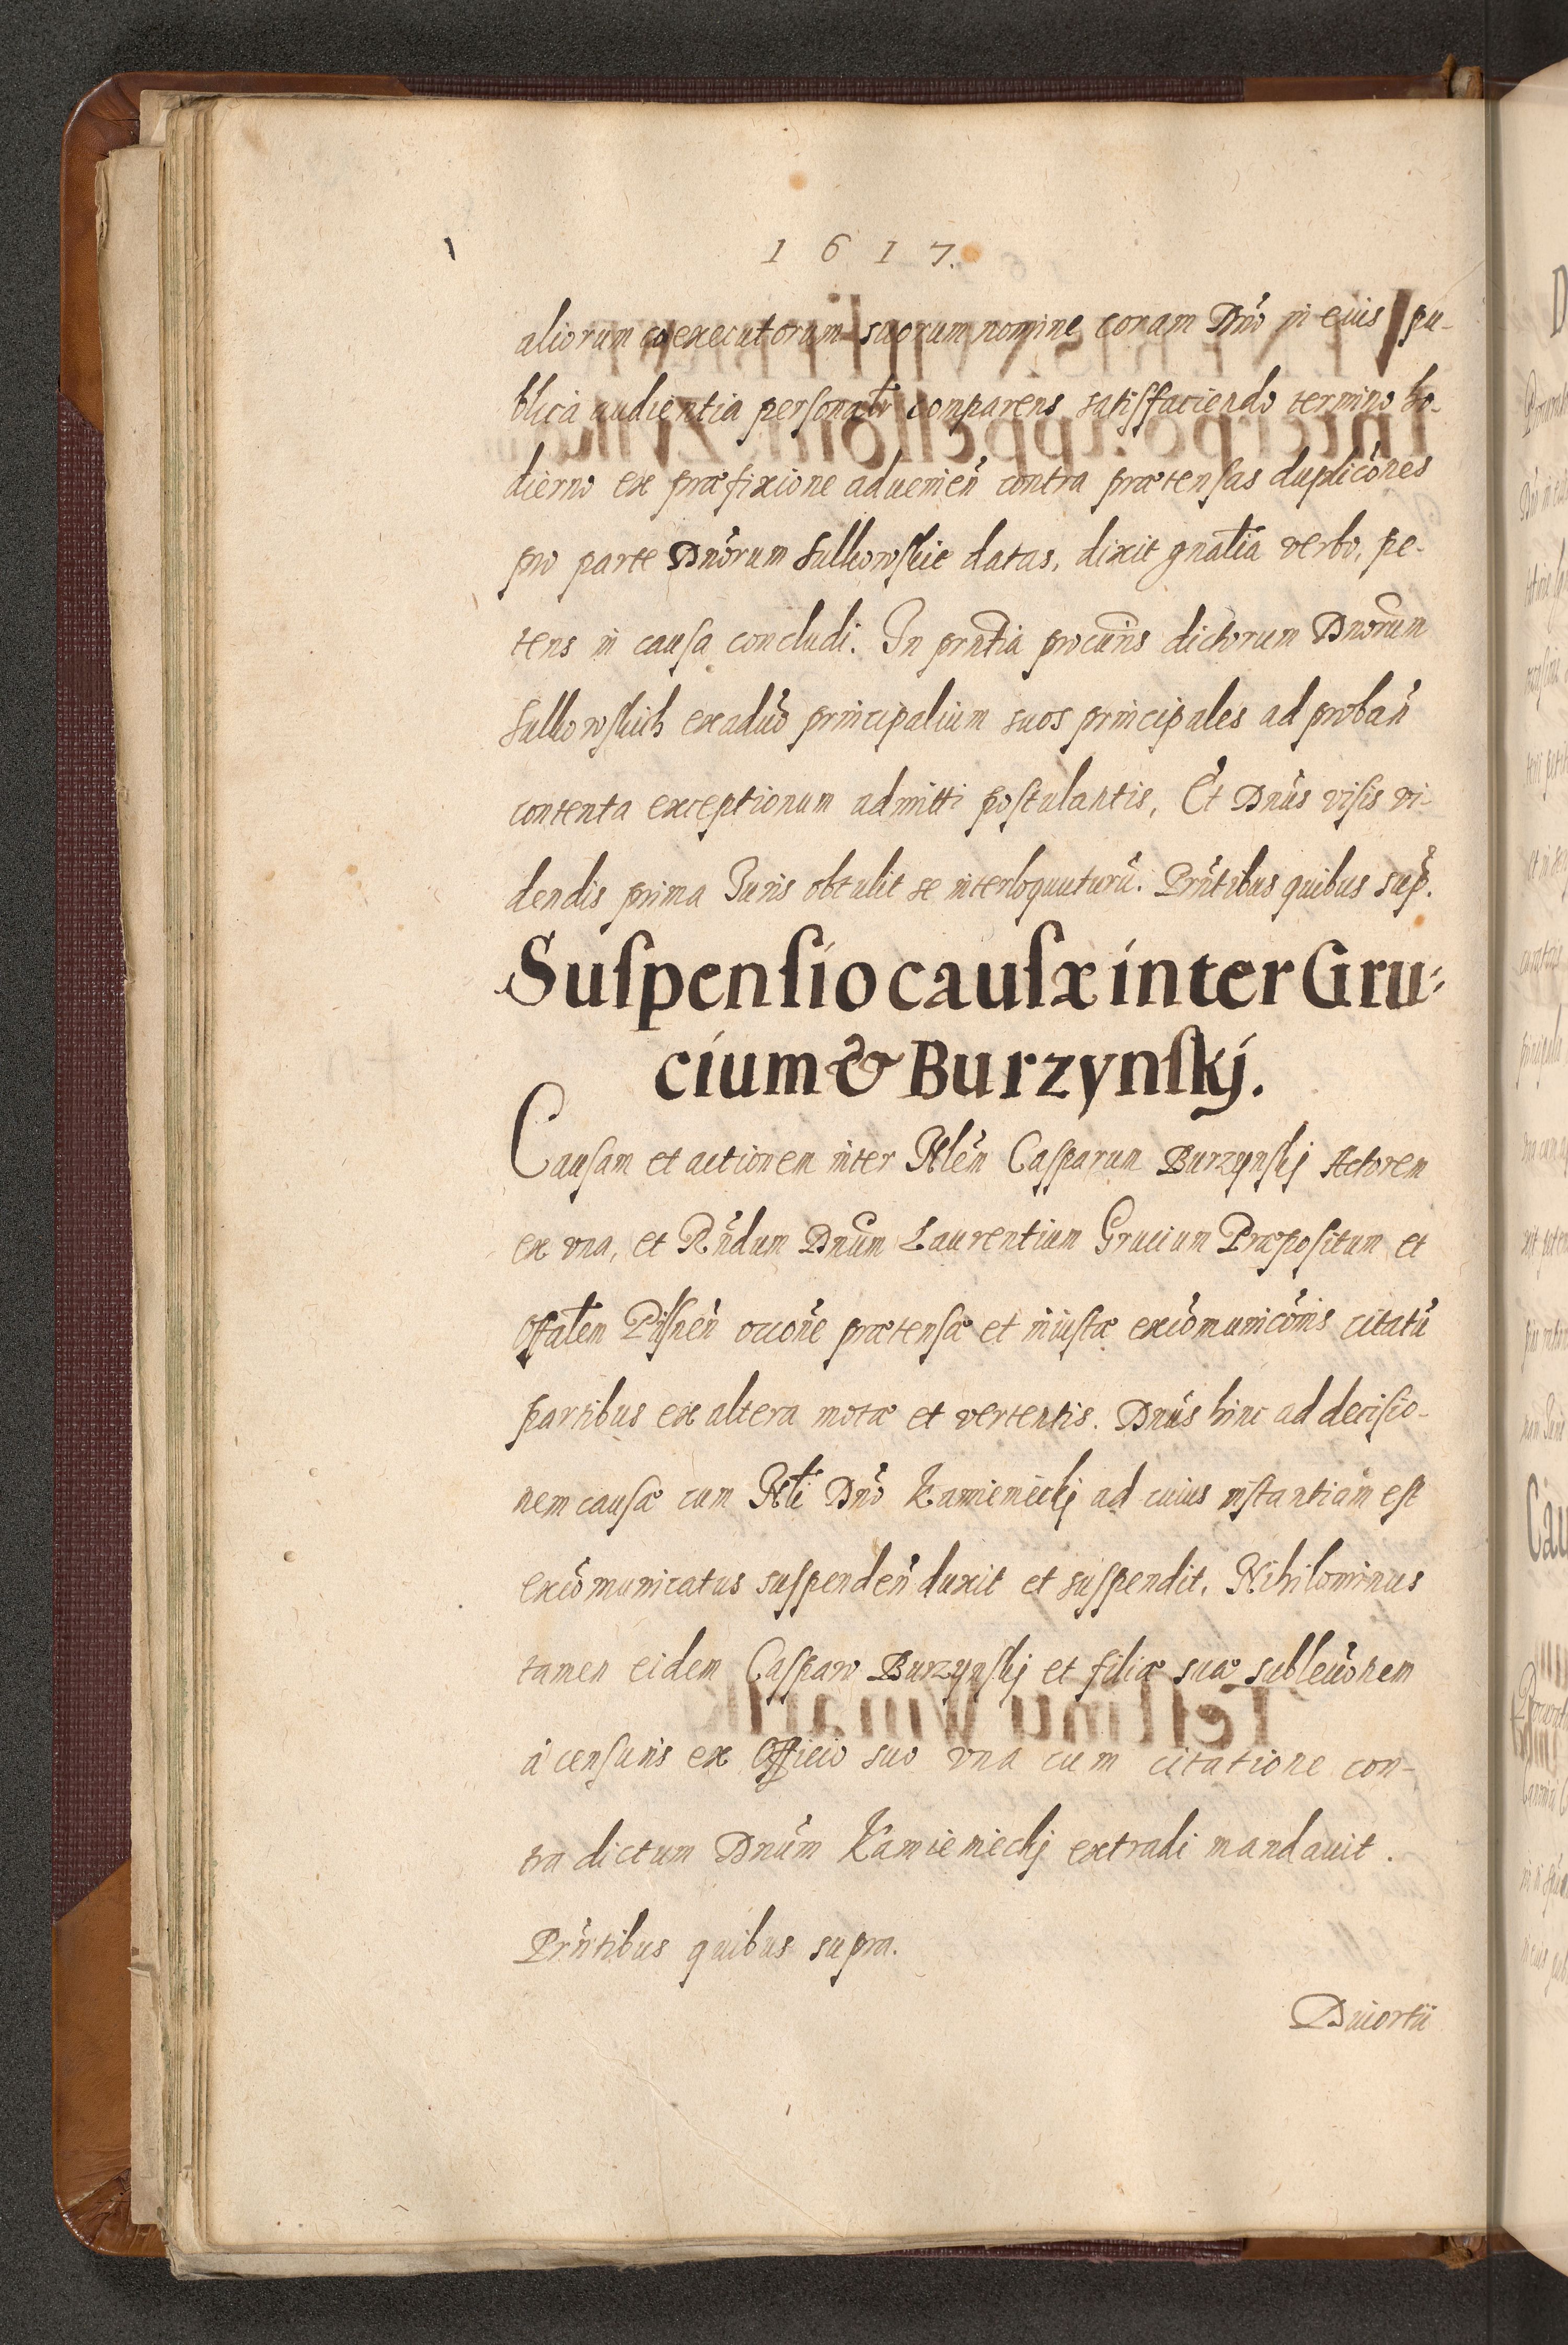 1617.
aliorum coexecutorum suorum nomine coram Dnō in eius pu-
blica audientia personalr comparens satisfaciendo termino ho-
dierno ex præfixione aduenien̄ contra prætensas duplicōnes
pro parte Dnōrum Sulkowskie datas, dixit gnalia verbo, pe-
tens in causa concludi. In prntia procuris dictorum Dnorum
Sulkowskich ex aduō principalium suos principales ad proban̄
contenta exceptionum admitti postulantis, Et Dnūs visis vi-
dendis prima Iuris obtulit se interloquuturū. Prn̄tibus quibus sup.
Suspensio causæ inter Gru-
cium & Burzynskj.
Causam et actionem inter Nlēm Casparum Burzynskj Actorem
ex vna, et Rn̄dum Dnūm Laurentium Grucium Præpositum et
Offalem Pilsnen̄ occōne prætensæ et iniustæ excōmunicōnis citatū
partibus ex altera motæ et vertentis. Dnūs hinc ad decisio-
nem causæ cum Nli Dnō Kamienieckj ad cuius instantiam est
excōmunicatus suspenden̄ duxit et suspendit, Nihilominus
tamen eidem Casparo Burzynskj et filiæ suæ subleuōnem
à censuris ex Officio suo vna cum citatione con-
tra dictum Dnūm Kamienieckj extradi mandauit.
Prn̄tibus quibus supra.
Diuortii